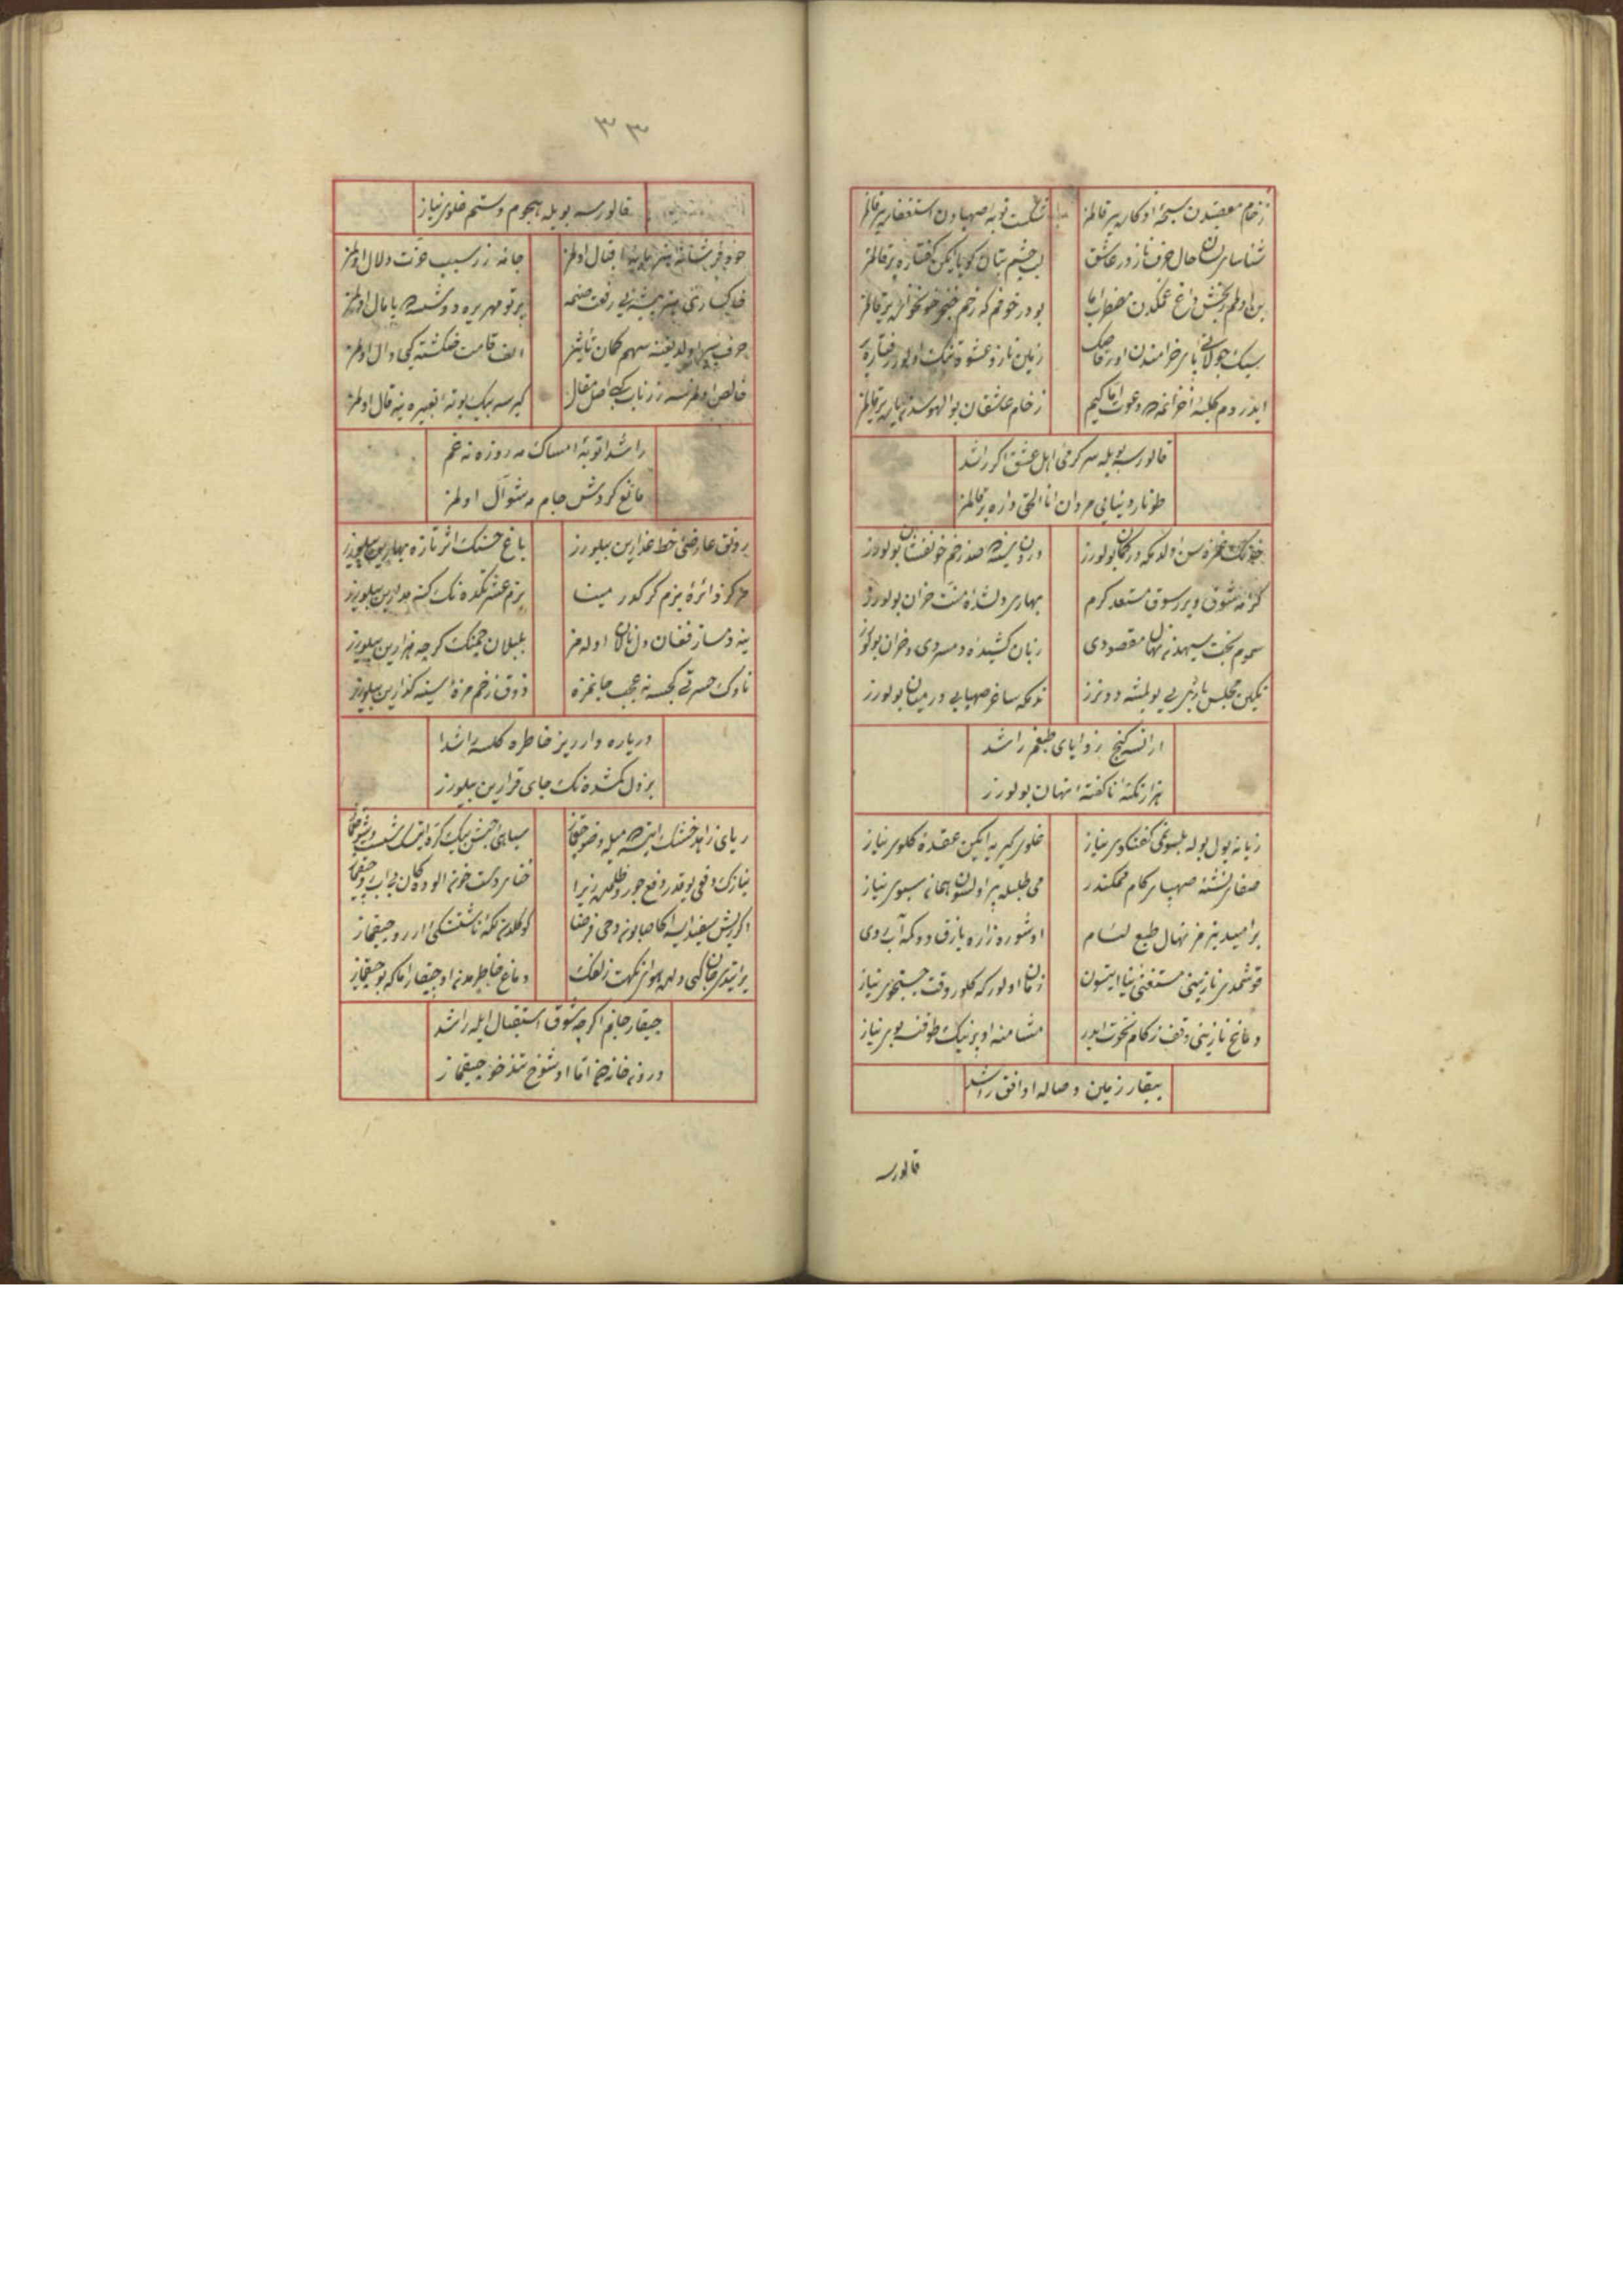 زخام معصیتدن سبحهٔ اذکاره یر قالمز
شکست توبهٔ صهبادن استغفاره یر قالمز
شناسای لسان حال حرف ناز در عاشق
لب چشم بتان کویا ایکن کفتاره یر قالمز
بن اولم رنجش داغ غمکدن مضطر اما
بو در خوفم که زخم خنجر خونخواره یر قالمز
سبک جولانی پای خرامندن اولور
زمین ناز و عشوه تنک اولور رفتاره یر
ایدر دم کلبهٔ احزانمه دعوت اما کیم
زخام عاشقان بوالهوسدن یاره یر قالمز
قالورسه بویله سرکرمی اهل عشق اکر راشد
طونار دنیایی مردان انا الحق داره یر قالمز
خدنک غمزه سن اولدکه در کمان بولورز
درون سینه ده صد زخم خونفشان بولورز
کرانه شوق ویرر سوق مستعد کرم
بهاری دلشده منت خزان بولورز
سموم بخت سیهدن نهال مقصودی
زبان کشیده دمسردی خزان بولورز
نکین مجلس یارانی بولمشه دونرز
نه که ساغر صهبایی در میان بولورز
ارانسه کنج زوایای طبعم راشد
هزار نکتهٔ ناکفتهٔ نهان بولورز
زبانه یول بوله بلسونمی کفتکوی نیاز
خلوی کیریه ایکن عقدهٔ کلوی نیاز
صفای نشئهٔ صهبای کام ممکندر
می طلبله پر اولسون همان سبوی نیاز
بر امید یتیرمز نهال طبع لئام
او شوره زاره یازق دوکمه آب روی
قوشمدی نازینی مستغنی نیاز ایتسون
زمان اولور که کلور وقت جستجوی نیاز
دماغ نازینی وقف زکام نخوت ایدر
مشامنه او پرینک طوقنسه بوی نیاز
ییقار زمین وصاله اوافق راشد
قالورسه
٣٣
قالورسه بویله هجوم و ستم خلوی نیاز
خود فروشانه هنر مایهٔ اقبال اولمز
جانه زر سبب عزت دلال اولمز
خاکسارلق هنر پیشه لری رفعت
پرتو مهر یره دوشسه ده پامال اولمز
حرف پیر اولدیغنه سهم کمان تأثیر
الف قامت خمکشته کبی دال اولمز
خالص اولمز نسه زر ناب کبی اصل مقال
کیرسه بیک بوتهٔ تعبیره ینه قال اولمز
راشدا توبهٔ امساک مه روزه نه غم
مانع کردش جام مه شوال اولمز
رونق عارضی خط عذارین بیلورز
باغ حسنک اثر تازه بهارین بیلورز
مرکز دائرهٔ بزم کر کدور مینا
بزم عشرتکده نک کنه مدارین بیلورز
ینه دمساز فغان دل نالان اوله مز
بلبلان چمنک کرچه هزارین بیلورز
ناوک حسرتی کچسه نه عجب جانمزه
ذوق زخم مژهٔ سینه کذارین بیلورز
دریاره وارریز خاطره کلسه راشدا
بز دل کمشده نک جای قرارین بیلورز
ریای زاهد خشک ایتسه میله وضو چیقماز
سیاهی حبش بیک کره ایتسه شست و شو چیقماز
نیازک دفعی یوقدر دفع جور و ظلمنه زیرا
حنای دست خون الوده کان بی آب رو چیقماز
اکر ریش سفید ایسه اکا صابونه دخی فرضا
کوکلدن نکهٔ ناشستکی ارزو چیقماز
یر ایتدی جان کبی دلده هوای نکهت زلفک
دماغ خاطرمدن او چیقار اما که بو چیقماز
چیقار جانم اکرچه شوق استقبال ایله راشد
درون خانه دن اما او شوخ تندخو چیقماز